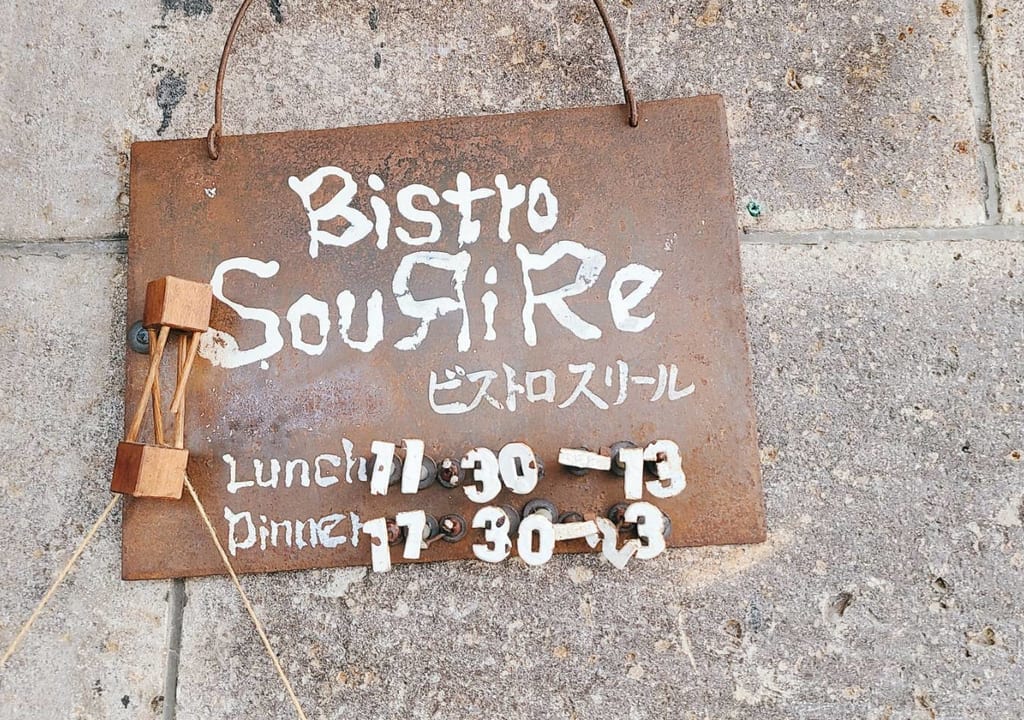 Bistro
SouRiRe
ビストロ スリール
Lunch 11:30 - 13
Dinner 17:30 - 23